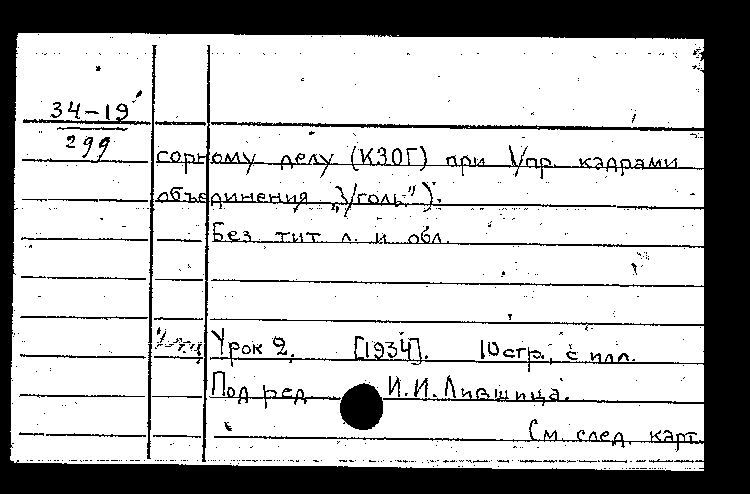 34-19
299
сорному делу (КЗОГ) при Упр. кадрами
объединения "Уголь").
Без тит. л. и обл.
Урок 2. [1934]. 10 стр., с илл.
Под ред. И.И. Лившица.
См. след. карт.